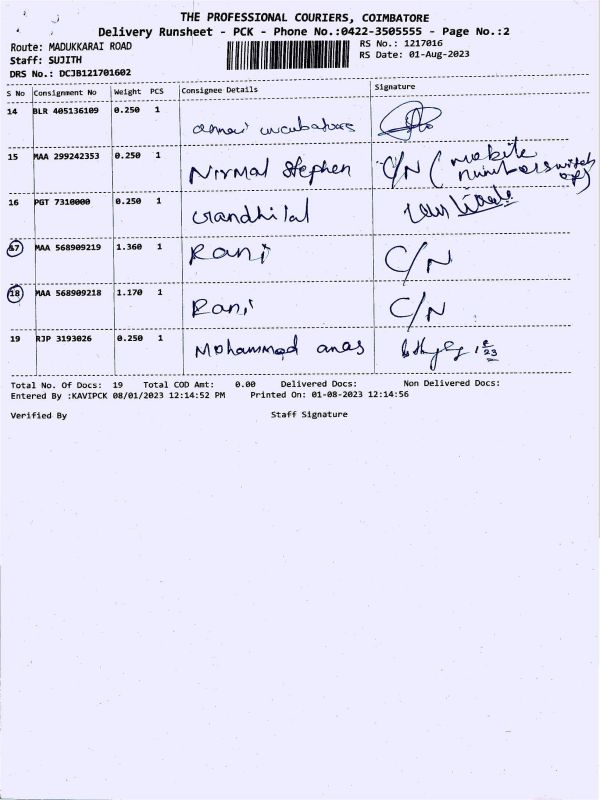 THE PROFESSIONAL COURIERS, COIMBATORE
Delivery Runsheet - PCK - Phone No.:0422-3505555 - Page No.:2
Route: MADUKKARAI ROAD RS No.: 1217016
Staff: SUJITH RS Date: 01-Aug-2023
DRS No.: DCJB121701602
S No Consignment No Weight PCS Consignee Details Signature
14 BLR 405136109 0.250 1
incubators
15 MAA 299242353 0.250 1
Nirmal Stephen C/N (mobile
number switch
of)
16 PGT 7310000 0.250 1
Gandhilal
17 MAA 568909219 1.360 1
Rani C/N
18 MAA 568909218 1.170 1
Rani C/N
19 RJP 3193026 0.250 1
Mohammad anas
Total No. Of Docs: 19 Total COD Amt: 0.00 Delivered Docs: Non Delivered Docs:
Entered By :KAVIPCK 08/01/2023 12:14:52 PM Printed On: 01-08-2023 12:14:56
Verified By Staff Signature